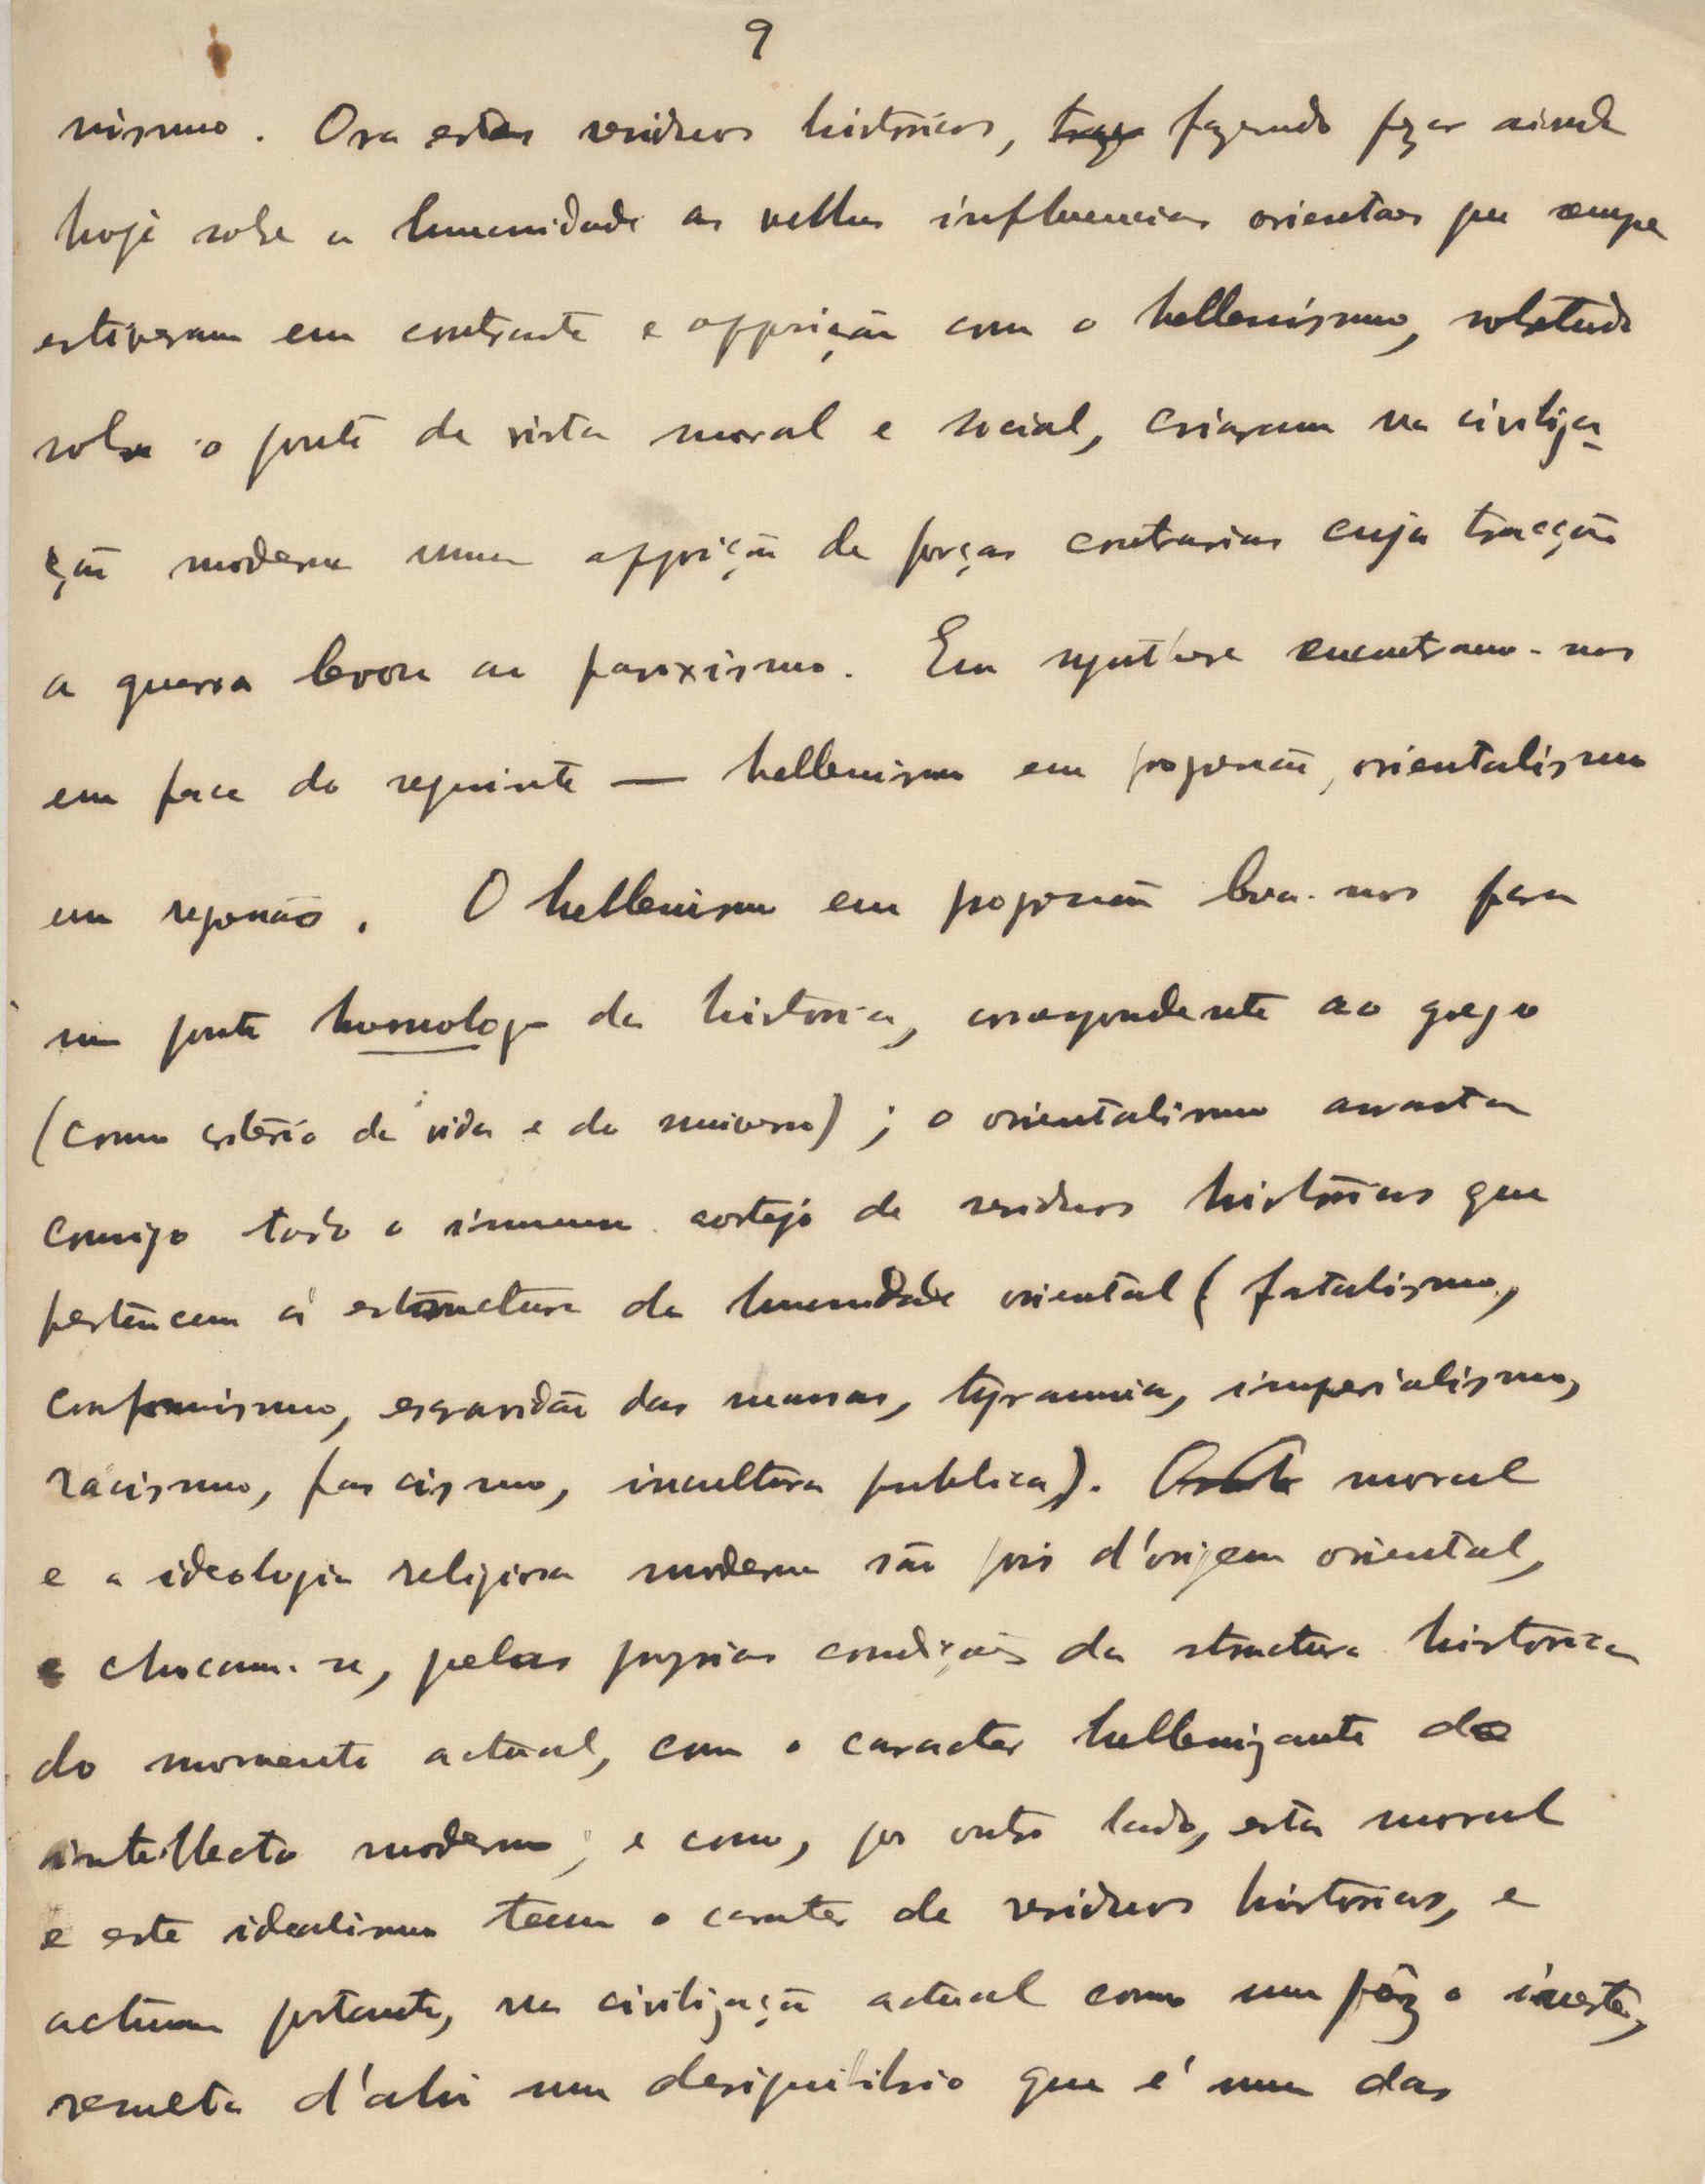 9
nismo. Ora estes residuos historicos, fazendo pezar ainda
hoje sobre a humanidade as velhas influencias orientaes que sempre
estiveram em contraste e opposição com o hellenismo, sobretudo
sobre o ponto de vista moral e social, criaram na civiliza-
ção moderna uma opposição de forças contrarias cuja tracção
a guerra levou ao paroxismo. Em synthese encontramo-nos
em face do seguinte — hellenismo em progressão, orientalismo
em regressão. O hellenismo em progressão leva-nos para
um ponto homologo da historia, correspondente ao grego
(como criterio da vida e do universo); o orientalismo arrasta
comsigo todo o immenso cortejo de residuos historicos que
pertencem á estructura da humanidade oriental (fatalismo,
conformismo, escravidão das massas, tyrannia, imperialismo,
racismo, fascismo, incultura publica). moral
e a ideologia religiosa moderna são pois d'origem oriental,
e chocam-se, pelas proprias condições da structura historica
do momento actual, com o caracter hellenizante do
intellecto moderno; e como, por outro lado, esta moral
e este idealismo teem o caracter de residuos historicos, e
actuam portanto, na civilização actual como um pêzo inerte,
resulta d'ahi um desiquilibrio que é uma das